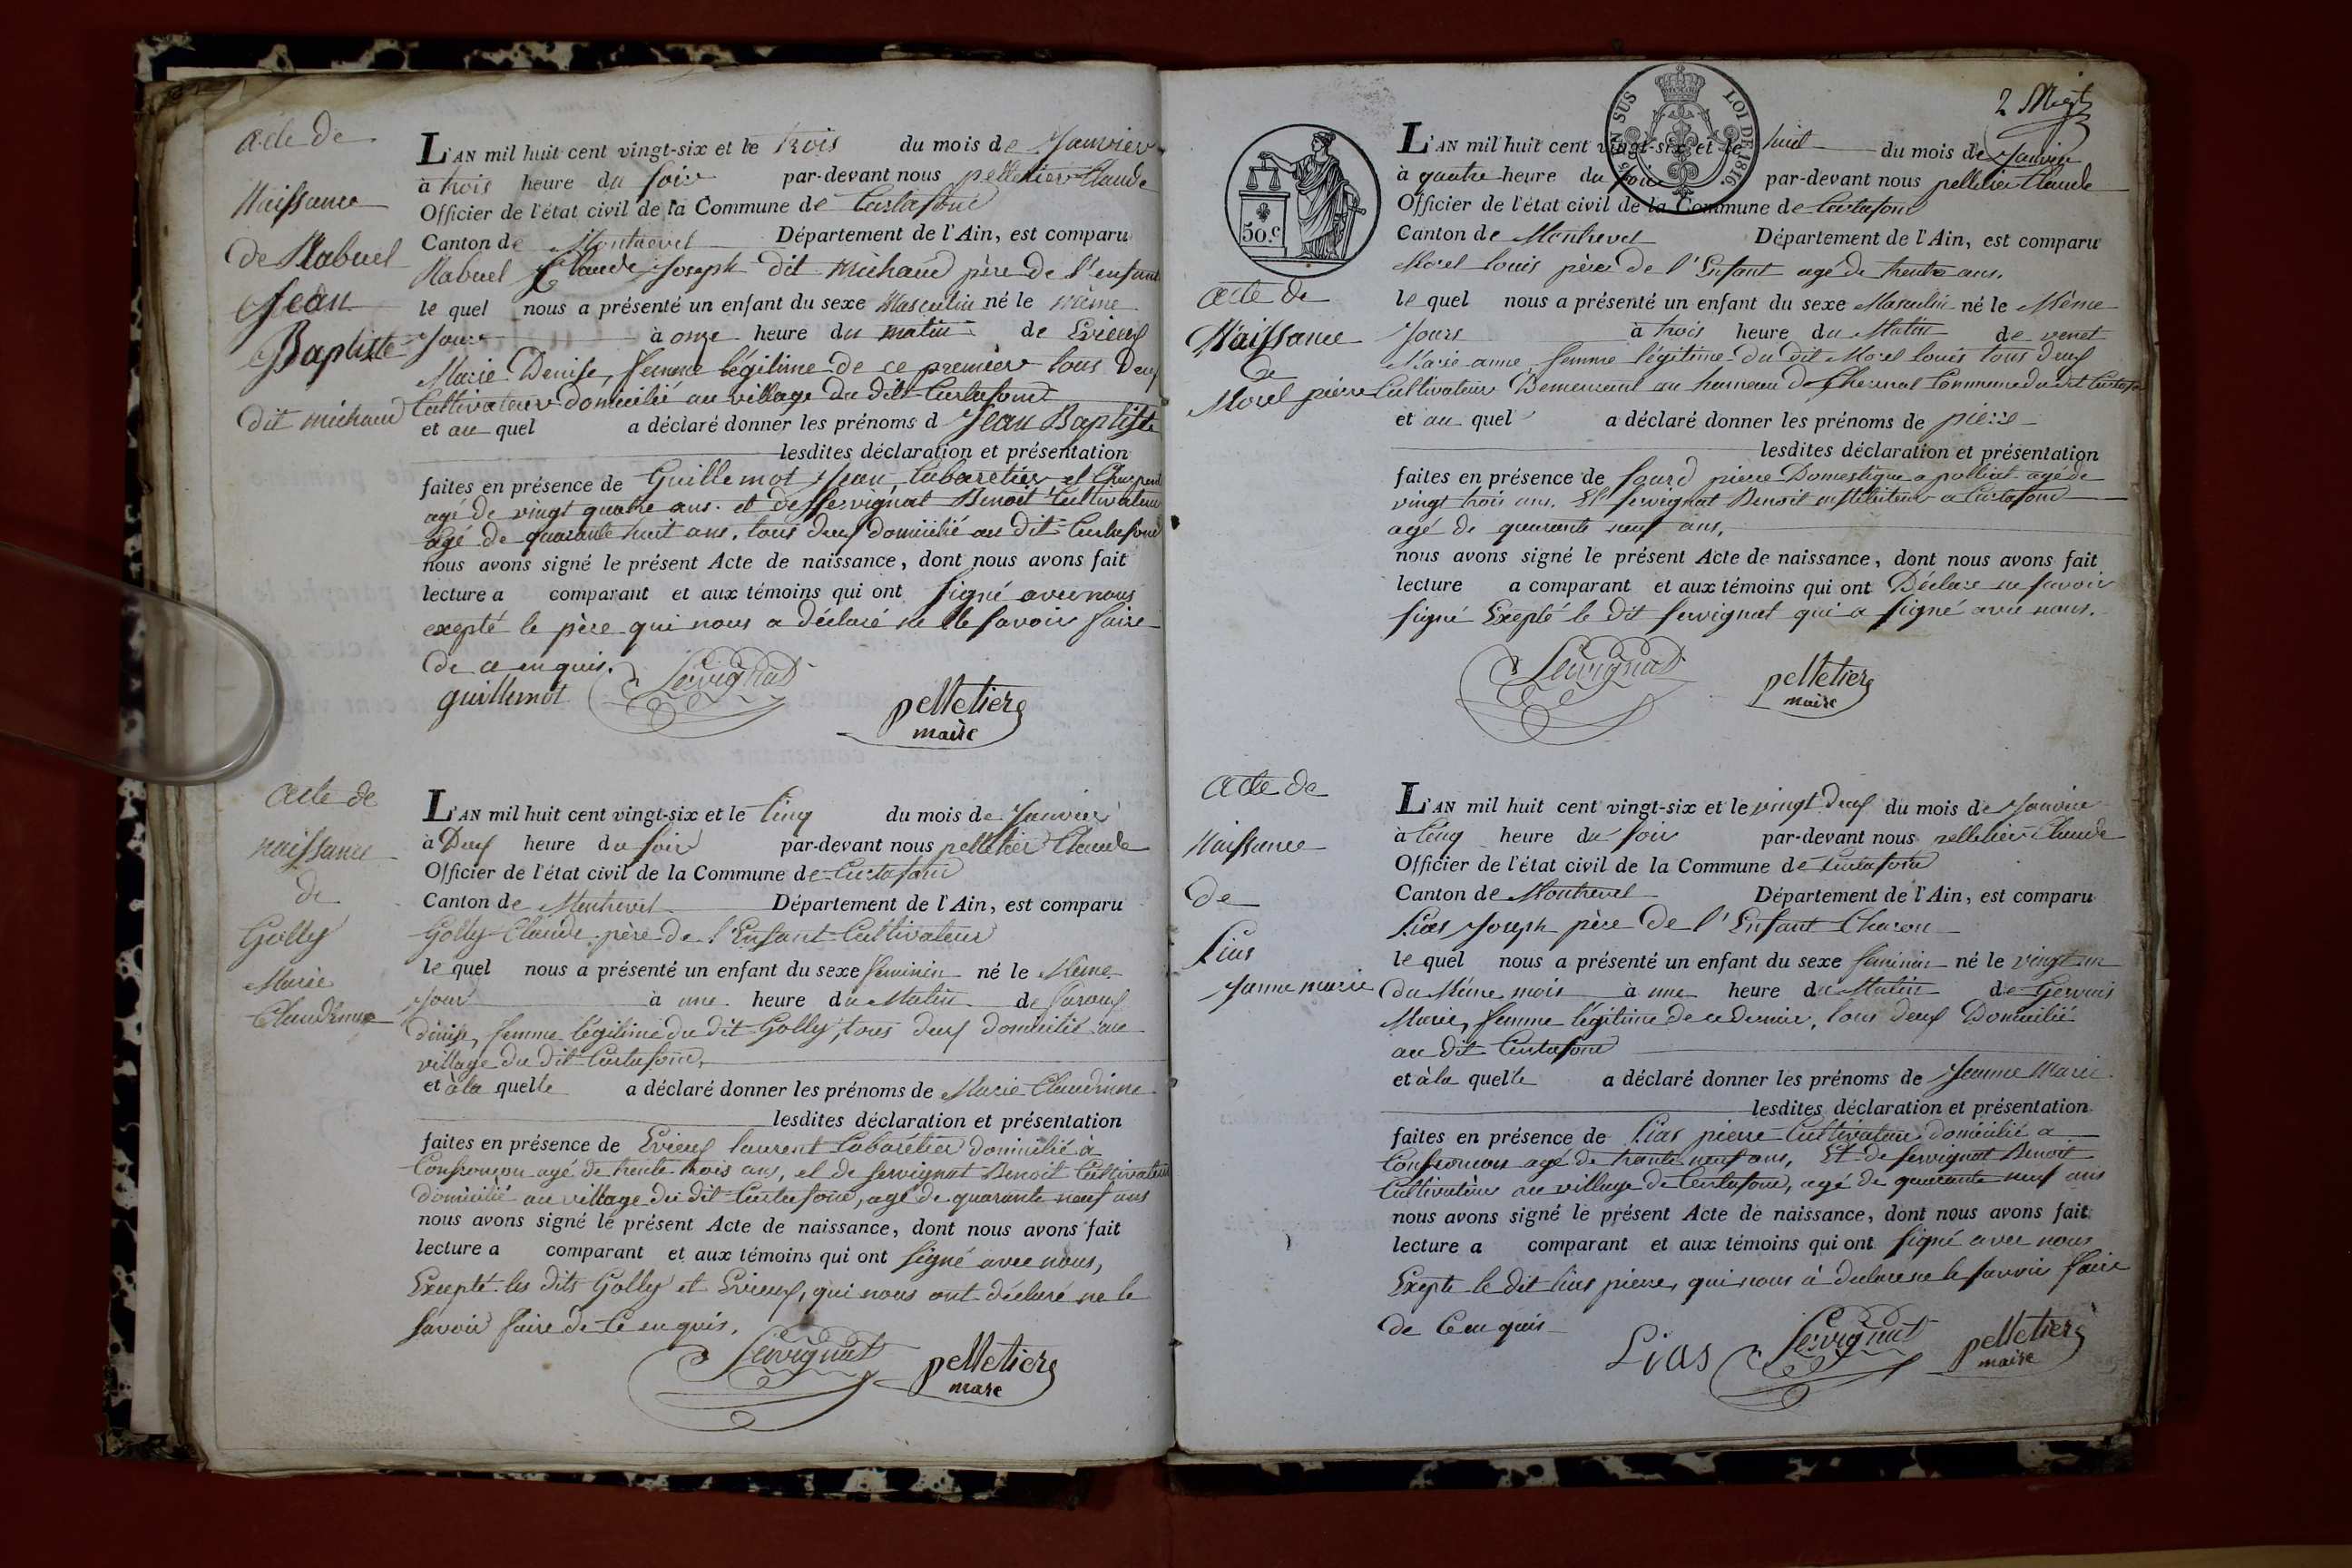 acte de
Naissance
de Rabuel
Jean
Baptiste
dit michaud
L'AN mil huit cent vingt-six et le trois du mois de Janvier
à trois heure du soir par-devant nous pelletier Claude
Officier de l'état civil de la Commune de Curtafond
Canton de Montrevel Département de l'Ain, est comparu
Rabuel Claude Joseph dit michaud père de l'enfant
le quel nous a présenté un enfant du sexe Masculin né le même
jour à onze heure du matin de Evieux
Marie Denise, femme légitime de ce premier tous Deux
Cultivateur domicilié au village du dit Curtafond
et au quel a déclaré donner les prénoms d Jean Baptiste
lesdites déclaration et présentation
faites en présence de Guillemot Jean Cabaretier et
agé de vingt quatre ans. et de Servignat Benoit Cultivateur
agé de quarante huit ans, tous deux domicilié au dit Curtafond
nous avons signé le présent Acte de naissance, dont nous avons fait
lecture a comparant et aux témoins qui ont signé avec nous
exepté le père qui nous a déclaré ne le savoir faire
de ce enquis.
guillemot Servignat pelletier
maire
acte de
naissance
de
Golly
Marie
Claudrinne
L'AN mil huit cent vingt-six et le Cinq du mois de Janvier
à Deux heure du soir par-devant nous pelletier Claude
Officier de l'état civil de la Commune de Curtafond
Canton de Montrevel Département de l'Ain, est comparu
Golly Claude père de l'Enfant Cultivateur
le quel nous a présenté un enfant du sexe feminin né le Même
Jour à une heure du Matin de
denise, femme légitime du dit Golly, tous deux domicilié au
village du dit Curtafond,
et à la quelle a déclaré donner les prénoms de Marie Claudrinne
lesdites déclaration et présentation
faites en présence de Evieux laurent Cabarétier domicilié à
Confrancon agé de trente trois ans, et de servignat Benoit Cultivateur
domicilié au village du dit Curtafond, agé de quarante neuf ans
nous avons signé le présent Acte de naissance, dont nous avons fait
lecture a comparant et aux témoins qui ont signé avec nous,
Exepté les dits Golly et Evieux, qui nous ont déclaré ne le
savoir faire de Ce enquis.
Servignat pelletier
mare
2
50.c
EN SUS LOI DE 1816.
acte de
Naissance
de
Morel pierre
L'AN mil huit cent vingt-six et le huit du mois de Janvier
à quatre heure du soir par-devant nous pelletier Claude
Officier de l'état civil de la Commune de Curtafond
Canton de Montrevel Département de l'Ain, est comparu
Morel louis père de l'Enfant agé de trente ans.
le quel nous a présenté un enfant du sexe Masculin né le Même
Jours à trois heure du Matin de venet
Marie anne, femme légitime du dit Morel louis tous deux
Cultivateur Demeurant au hameau de Commune du dit Curtafond
et au quel a déclaré donner les prénoms de pierre
lesdites déclaration et présentation
faites en présence de pierre Domestique a polliat agé de
vingt trois ans. Et servignat Benoit instituteur a Curtafond
agé de quarante neuf ans,
nous avons signé le présent Acte de naissance, dont nous avons fait
lecture a comparant et aux témoins qui ont Déclare ne savoir
signé Exepté le dit servignat qui a signé avec nous.
Servignat pelletier
maire
acte de
Naissance
de
Lias
Janne marie
L'AN mil huit cent vingt-six et le vingt deux du mois de Janvier
à Cinq heure du soir par-devant nous pelletier Claude
Officier de l'état civil de la Commune de Curtafond
Canton de Montrevel Département de l'Ain, est comparu
Lias Joseph père de l'Enfant Charon
le quel nous a présenté un enfant du sexe feminin né le vingt un
du Même mois à une heure du Matin de Gervais
Marie, femme légitime de ce dernier, tous deux Domicilié
au dit Curtafond
et à la quelle a déclaré donner les prénoms de Jeanne Marie
lesdites déclaration et présentation
faites en présence de Lias pierre Cultivateur domicilié a
Confrancon agé de trante neuf ans, Et de servignat Benoit
Cultivateur au village de Curtafond, agé de quarante neuf ans
nous avons signé le présent Acte de naissance, dont nous avons fait
lecture a comparant et aux témoins qui ont signé avec nous
Exepte le dit lias pierre, qui nous à declare ne le savoir faire
de Ce enquis
Lias Servignat pelletier
maire